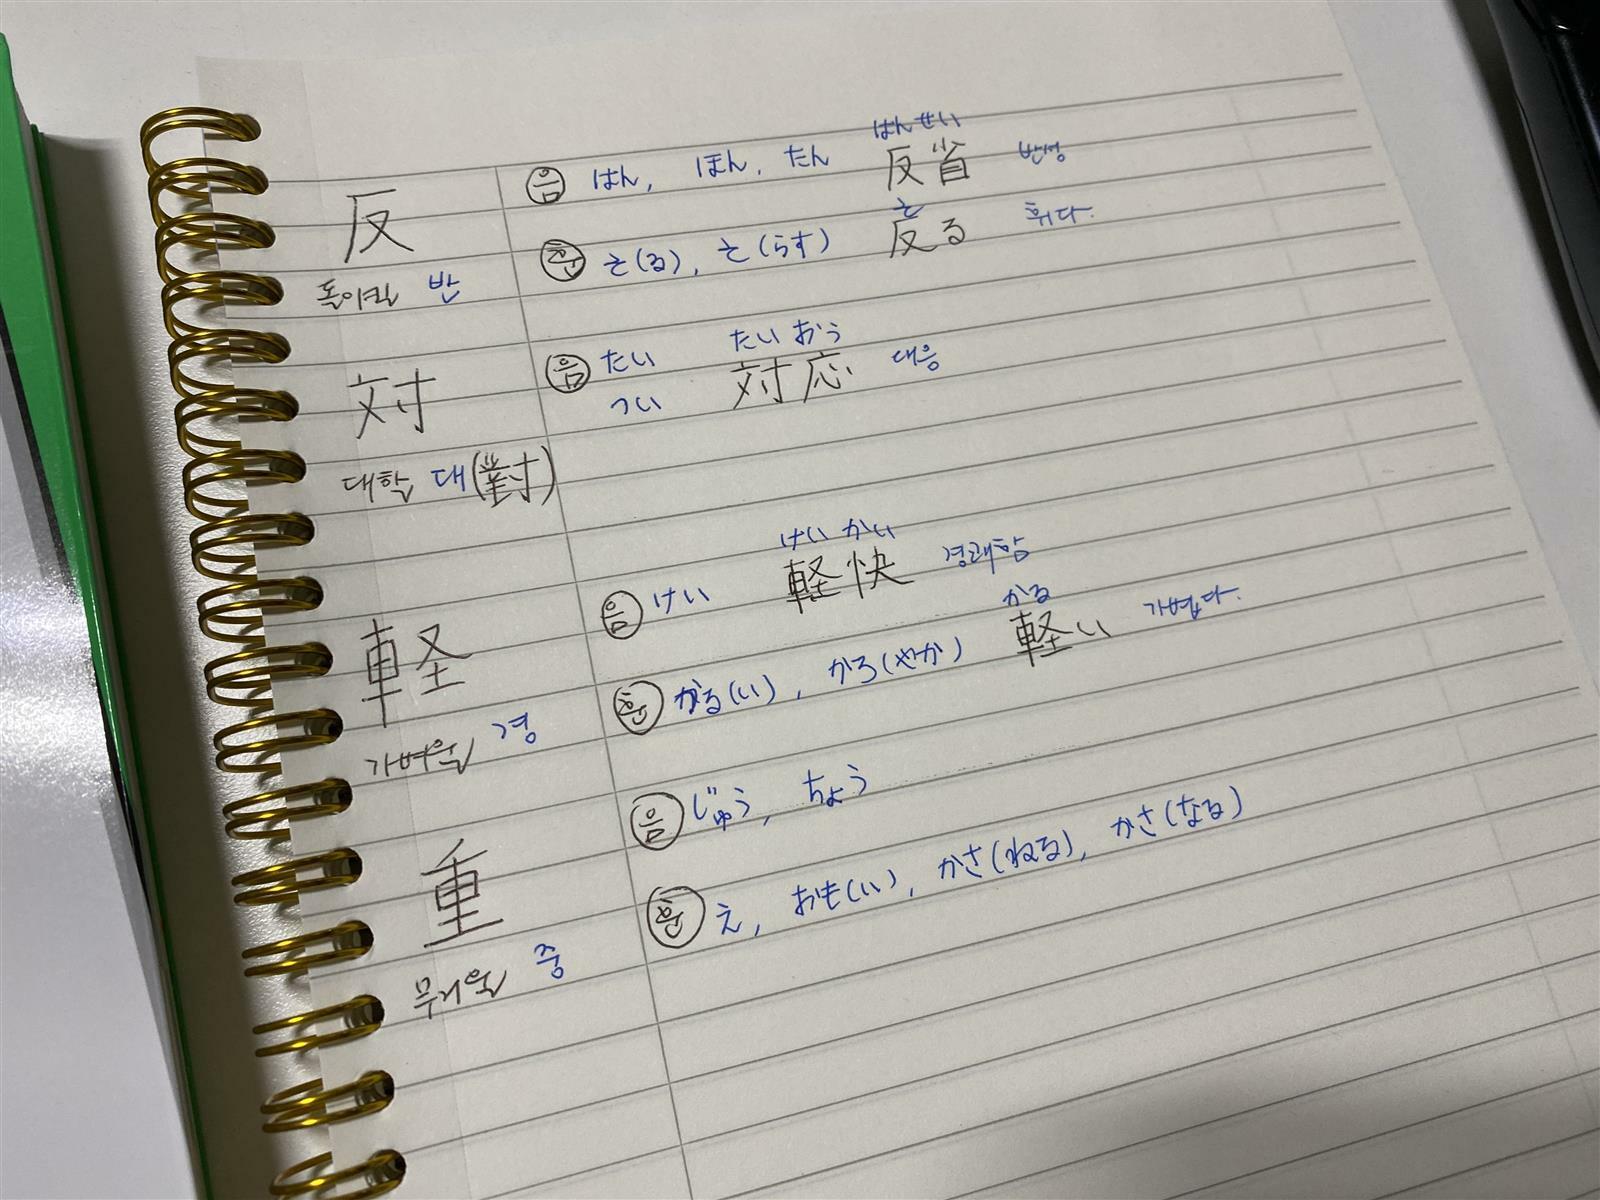 はんせい
反 音 はん, ほん, たん 反省 반성
そ
훈 そ(る), そ(らす) 反る 휘다.
돌이킬 반
たいおう
対 음 たい 対応 대응
つい
대할 대(對)
けいかい
음 けい 軽快 경쾌함
かる
軽 훈 かる(い), かろ(やか) 軽い 가볍다.
가벼울 경
음 じゅう, ちょう
重 훈 え, おも(い), かさ(ねる), かさ(なる)
무거울 중